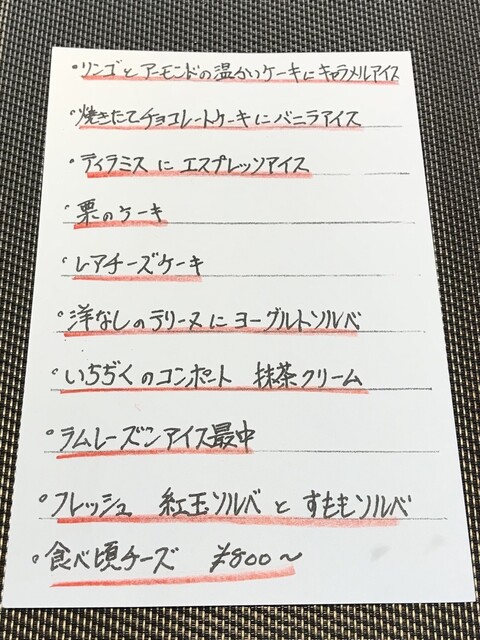 ・リンゴとアーモンドの温かいケーキにキャラメルアイス
・焼きたてチョコレートケーキにバニラアイス
・ティラミスに エスプレッソアイス
・栗のケーキ
・レアチーズケーキ
・洋なしのテリーヌにヨーグルトソルベ
・いちぢくのコンポート 抹茶クリーム
・ラムレーズンアイス最中
・フレッシュ 紅玉ソルベと すももソルベ
・食べ頃チーズ ¥800〜